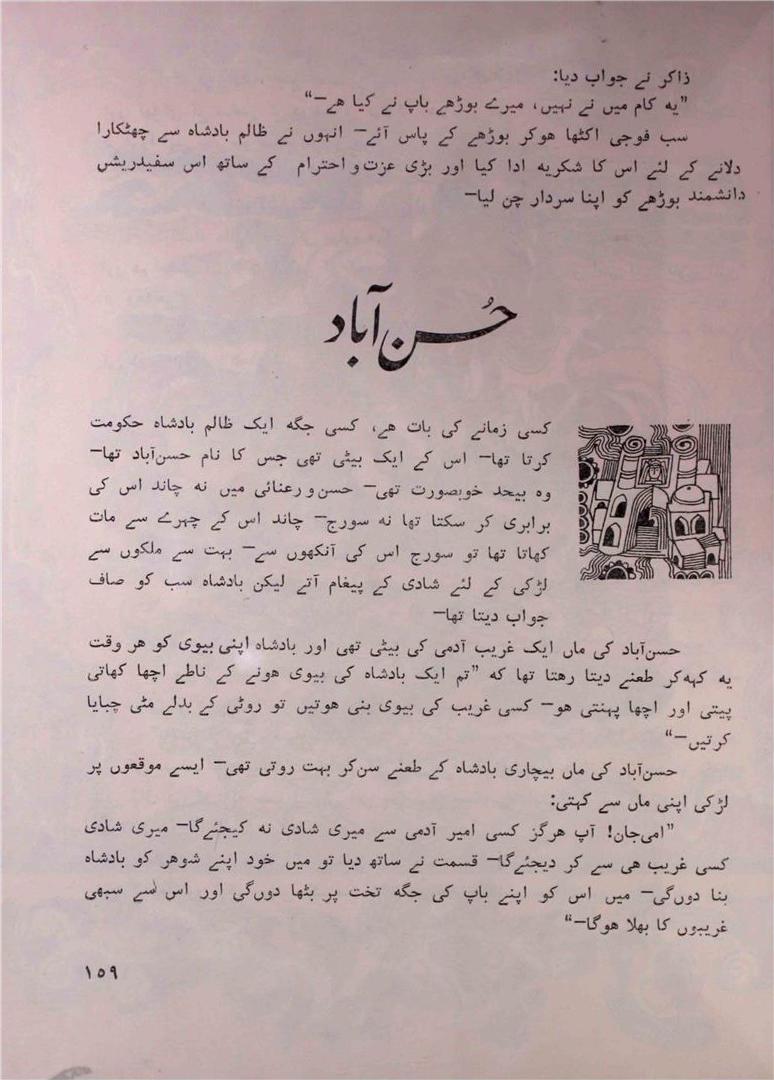 ذاکر نے جواب دیا:
”یہ کام میں نے نہیں، میرے بوڑھے باپ نے کیا ہے—“
سب فوجی اکٹھا ہوکر بوڑھے کے پاس آئے— انہوں نے ظالم بادشاہ سے چھٹکارا
دلانے کے لئے اس کا شکریہ ادا کیا اور بڑی عزت و احترام کے ساتھ اس سفیدریش
دانشمند بوڑھے کو اپنا سردار چن لیا—
حُسن آباد
کسی زمانے کی بات ہے، کسی جگہ ایک ظالم بادشاہ حکومت
کرتا تھا— اس کے ایک بیٹی تھی جس کا نام حسن‌آباد تھا—
وہ بیحد خوبصورت تھی— حسن و رعنائی میں نہ چاند اس کی
برابری کر سکتا تھا نہ سورج— چاند اس کے چہرے سے مات
کھاتا تھا تو سورج اس کی آنکھوں سے— بہت سے ملکوں سے
لڑکی کے لئے شادی کے پیغام آتے لیکن بادشاہ سب کو صاف
جواب دیتا تھا—
حسن‌آباد کی ماں ایک غریب آدمی کی بیٹی تھی اور بادشاہ اپنی بیوی کو ہر وقت
یہ کہہ‌کر طعنے دیتا رہتا تھا کہ ”تم ایک بادشاہ کی بیوی ہونے کے ناطے اچھا کھاتی
پیتی اور اچھا پہنتی ہو— کسی غریب کی بیوی بنی ہوتیں تو روٹی کے بدلے مٹی چبایا
کرتیں—“
حسن‌آباد کی ماں بیچاری بادشاہ کے طعنے سن‌کر بہت روتی تھی— ایسے موقعوں پر
لڑکی اپنی ماں سے کہتی:
”امی‌جان! آپ ہرگز کسی امیر آدمی سے میری شادی نہ کیجئےگا— میری شادی
کسی غریب ہی سے کر دیجئےگا— قسمت نے ساتھ دیا تو میں خود اپنے شوہر کو بادشاہ
بنا دوں‌گی— میں اس کو اپنے باپ کی جگہ تخت پر بٹھا دوں‌گی اور اس سے سبھی
غریبوں کا بھلا ہوگا—“
۱۵۹